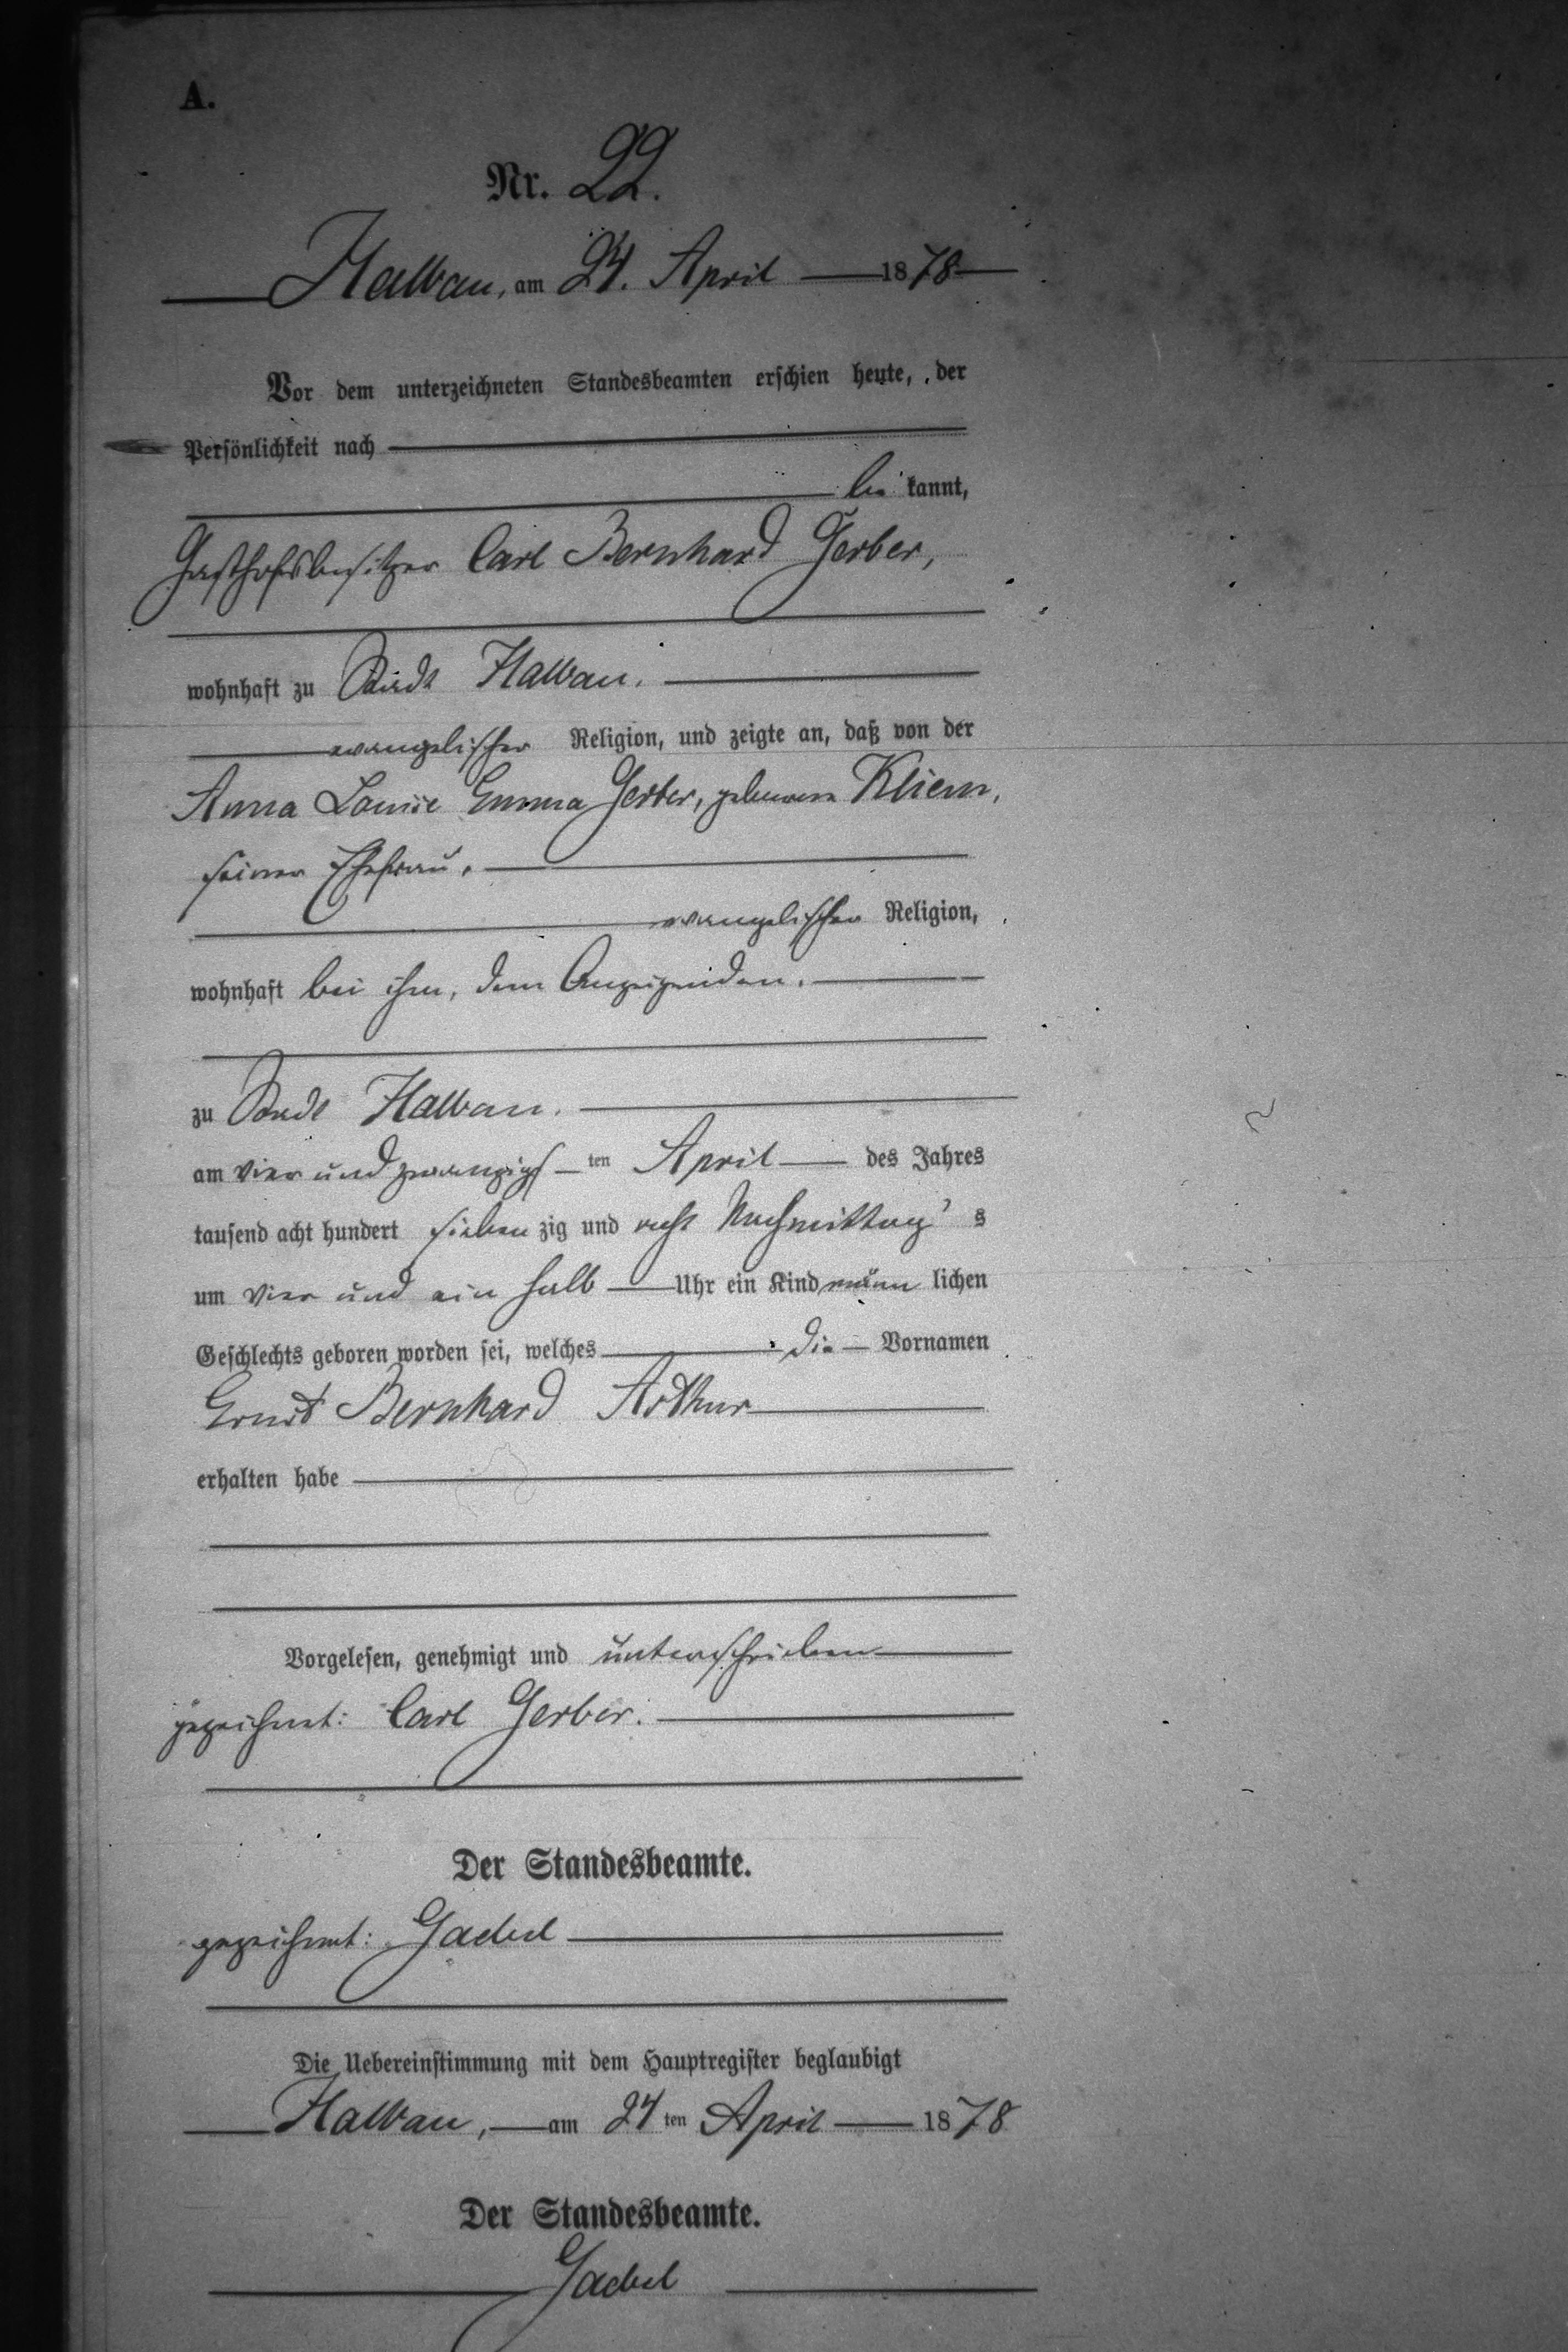 A.
Nr. 22.
Halbau, am 24. April 1878
Vor dem unterzeichneten Standesbeamten erschien heute, der
Persönlichkeit nach
be kannt,
Gasthofsbesitzer Carl Bernhard Gerber,
wohnhaft zu Stadt Halbau.
evangelischer Religion, und zeigte an, daß von der
Anna Louise Emma Gerber, geborene Kliem,
seiner Ehefrau,
evangelischer Religion,
wohnhaft bei ihm, dem Anzeigenden,
zu Stadt Halbau.
am vier und zwanzigs ten April des Jahres
tausend acht hundert sieben zig und acht Nachmittag s
um vier und ein halb Uhr ein Kind männ lichen
Geschlechts geboren worden sei, welches die Vornamen
Ernst Bernhard Arthur
erhalten habe
Vorgelesen, genehmigt und unterschrieben
gezeichnet: Carl Gerber.
Der Standesbeamte.
gezeichnet:
Die Uebereinstimmung mit dem Hauptregister beglaubigt
Halbau, am 24 ten April 1878
Der Standesbeamte.